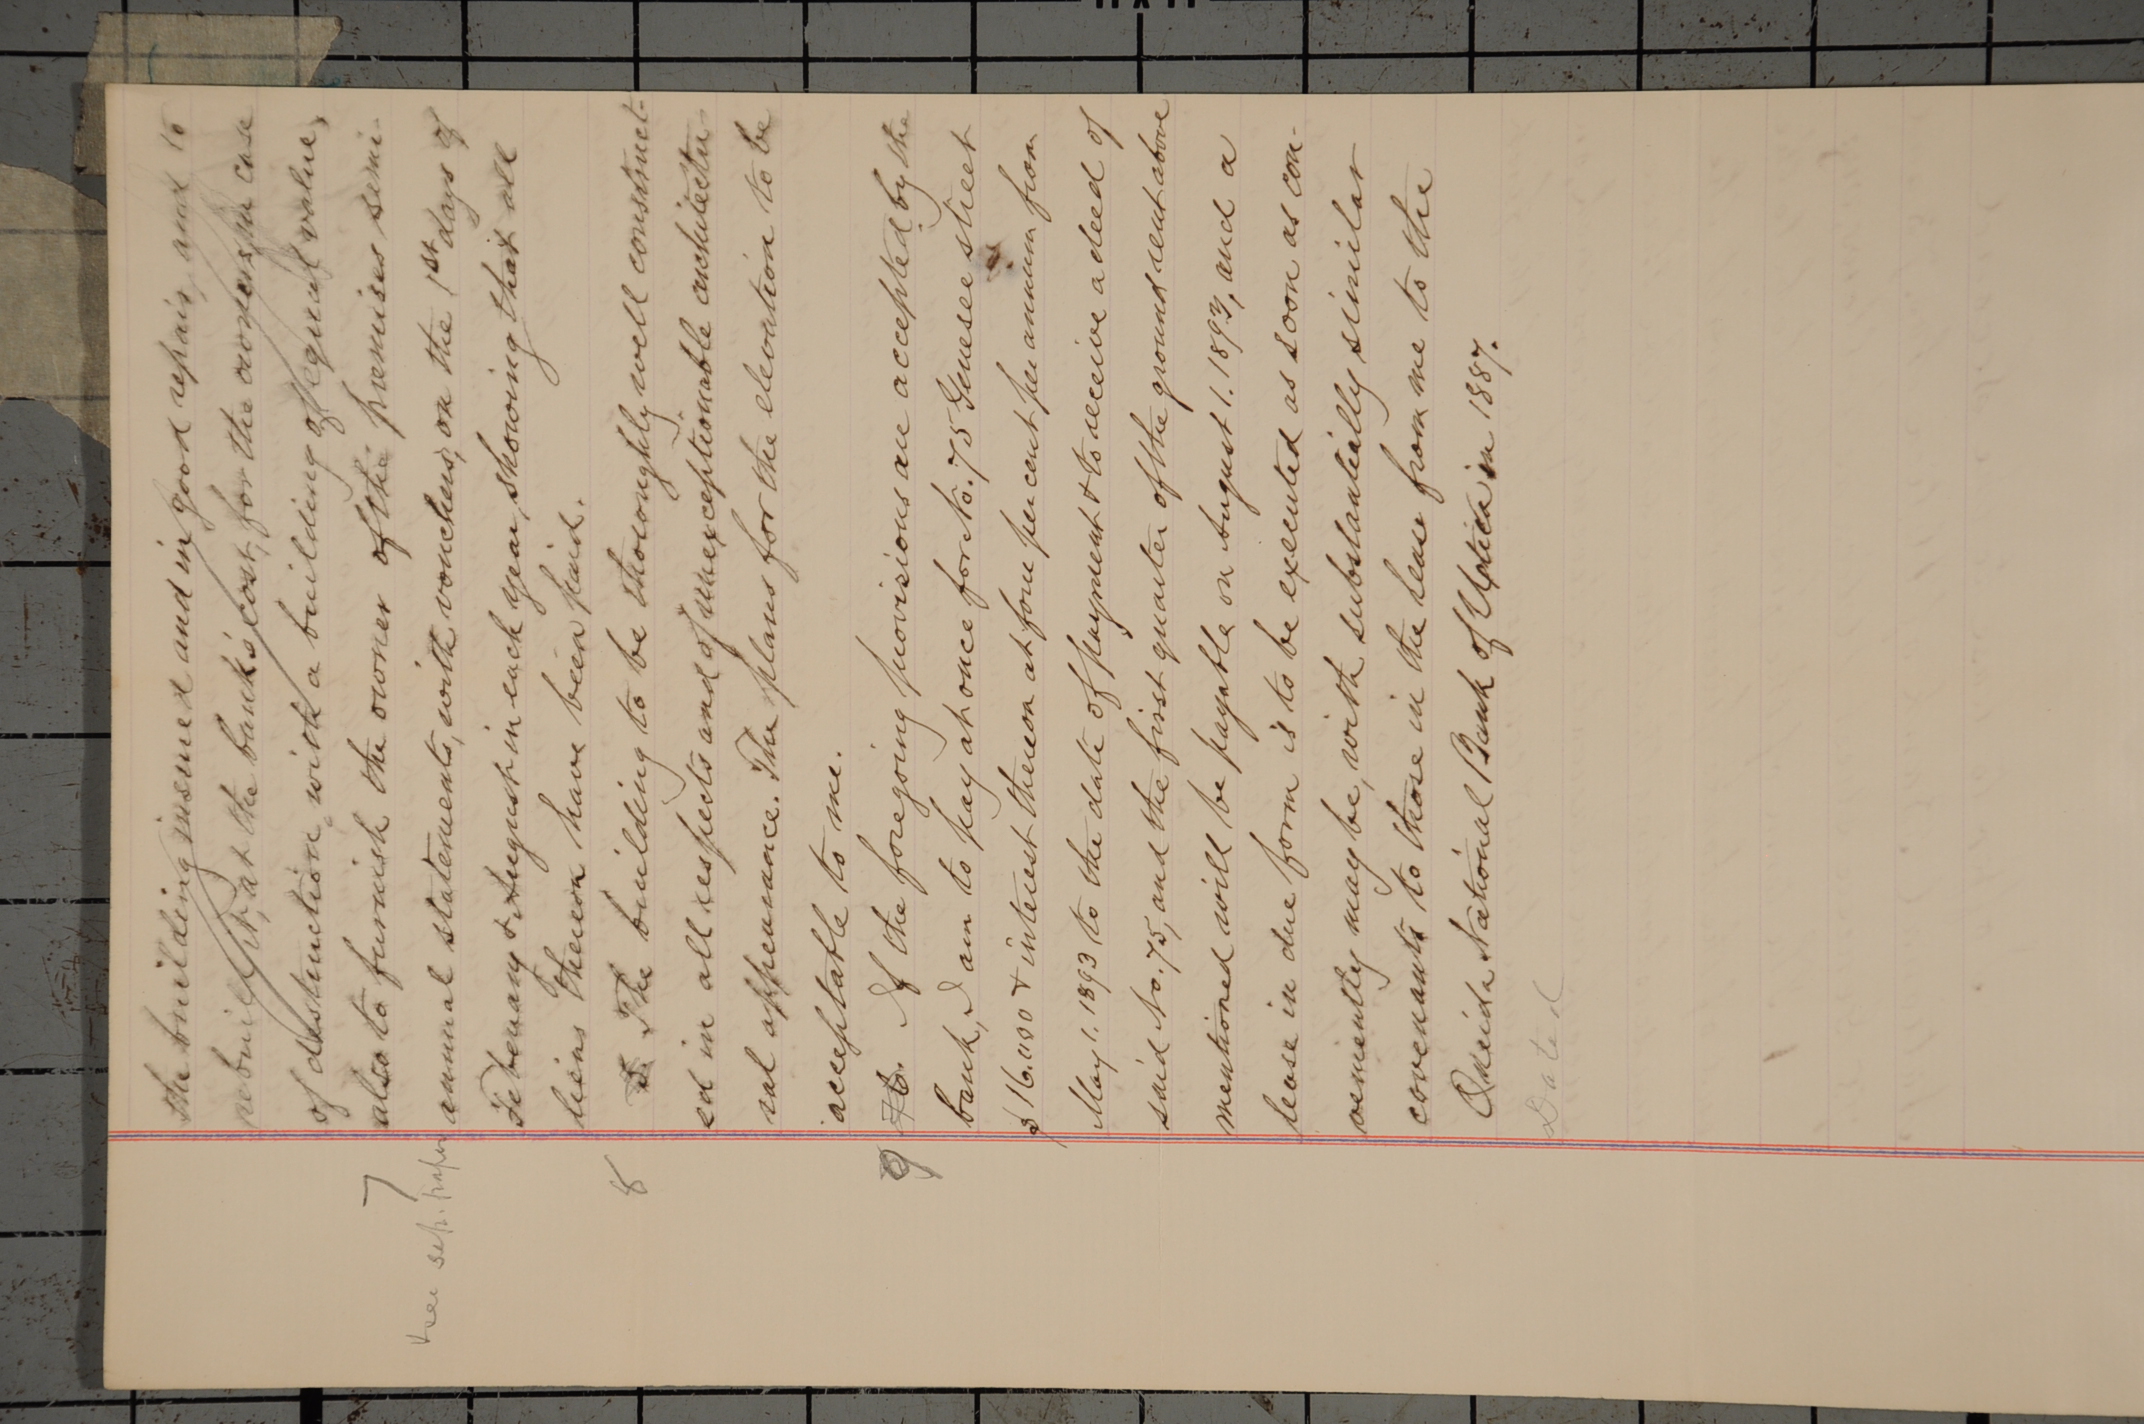 the building insured and in good repair, and to
rebuild it, at the bank's cost, for the owner, in case
of destruction, with a building of equal value,
7 also to furnish the owner of the premises semi-
see sep. paper annual statements, with vouchers, on the 1st days of
February & August in each year, showing that all
liens thereon have been paid.
8 The building to be thoroughly well construct-
ed in all respects and of unexceptionable architectu-
ral appearance. The plans for the elevation to be
acceptable to me.
9 If the foregoing provisions are accepted by the
bank, I am to pay at once for No. 75 Genesee street
$16.000 & interest thereon at four per cent per annum from
May 1. 1893 to the date of payment & to receive a deed of
said No. 75, and the first quarter of the ground rent above
mentioned will be payable on August 1. 1893, and a
lease in due form is to be executed as soon as con-
veniently may be, with substantially similar
covenants to those in the lease from me to the
Oneida National Bank of Utica in 1887.
Dated